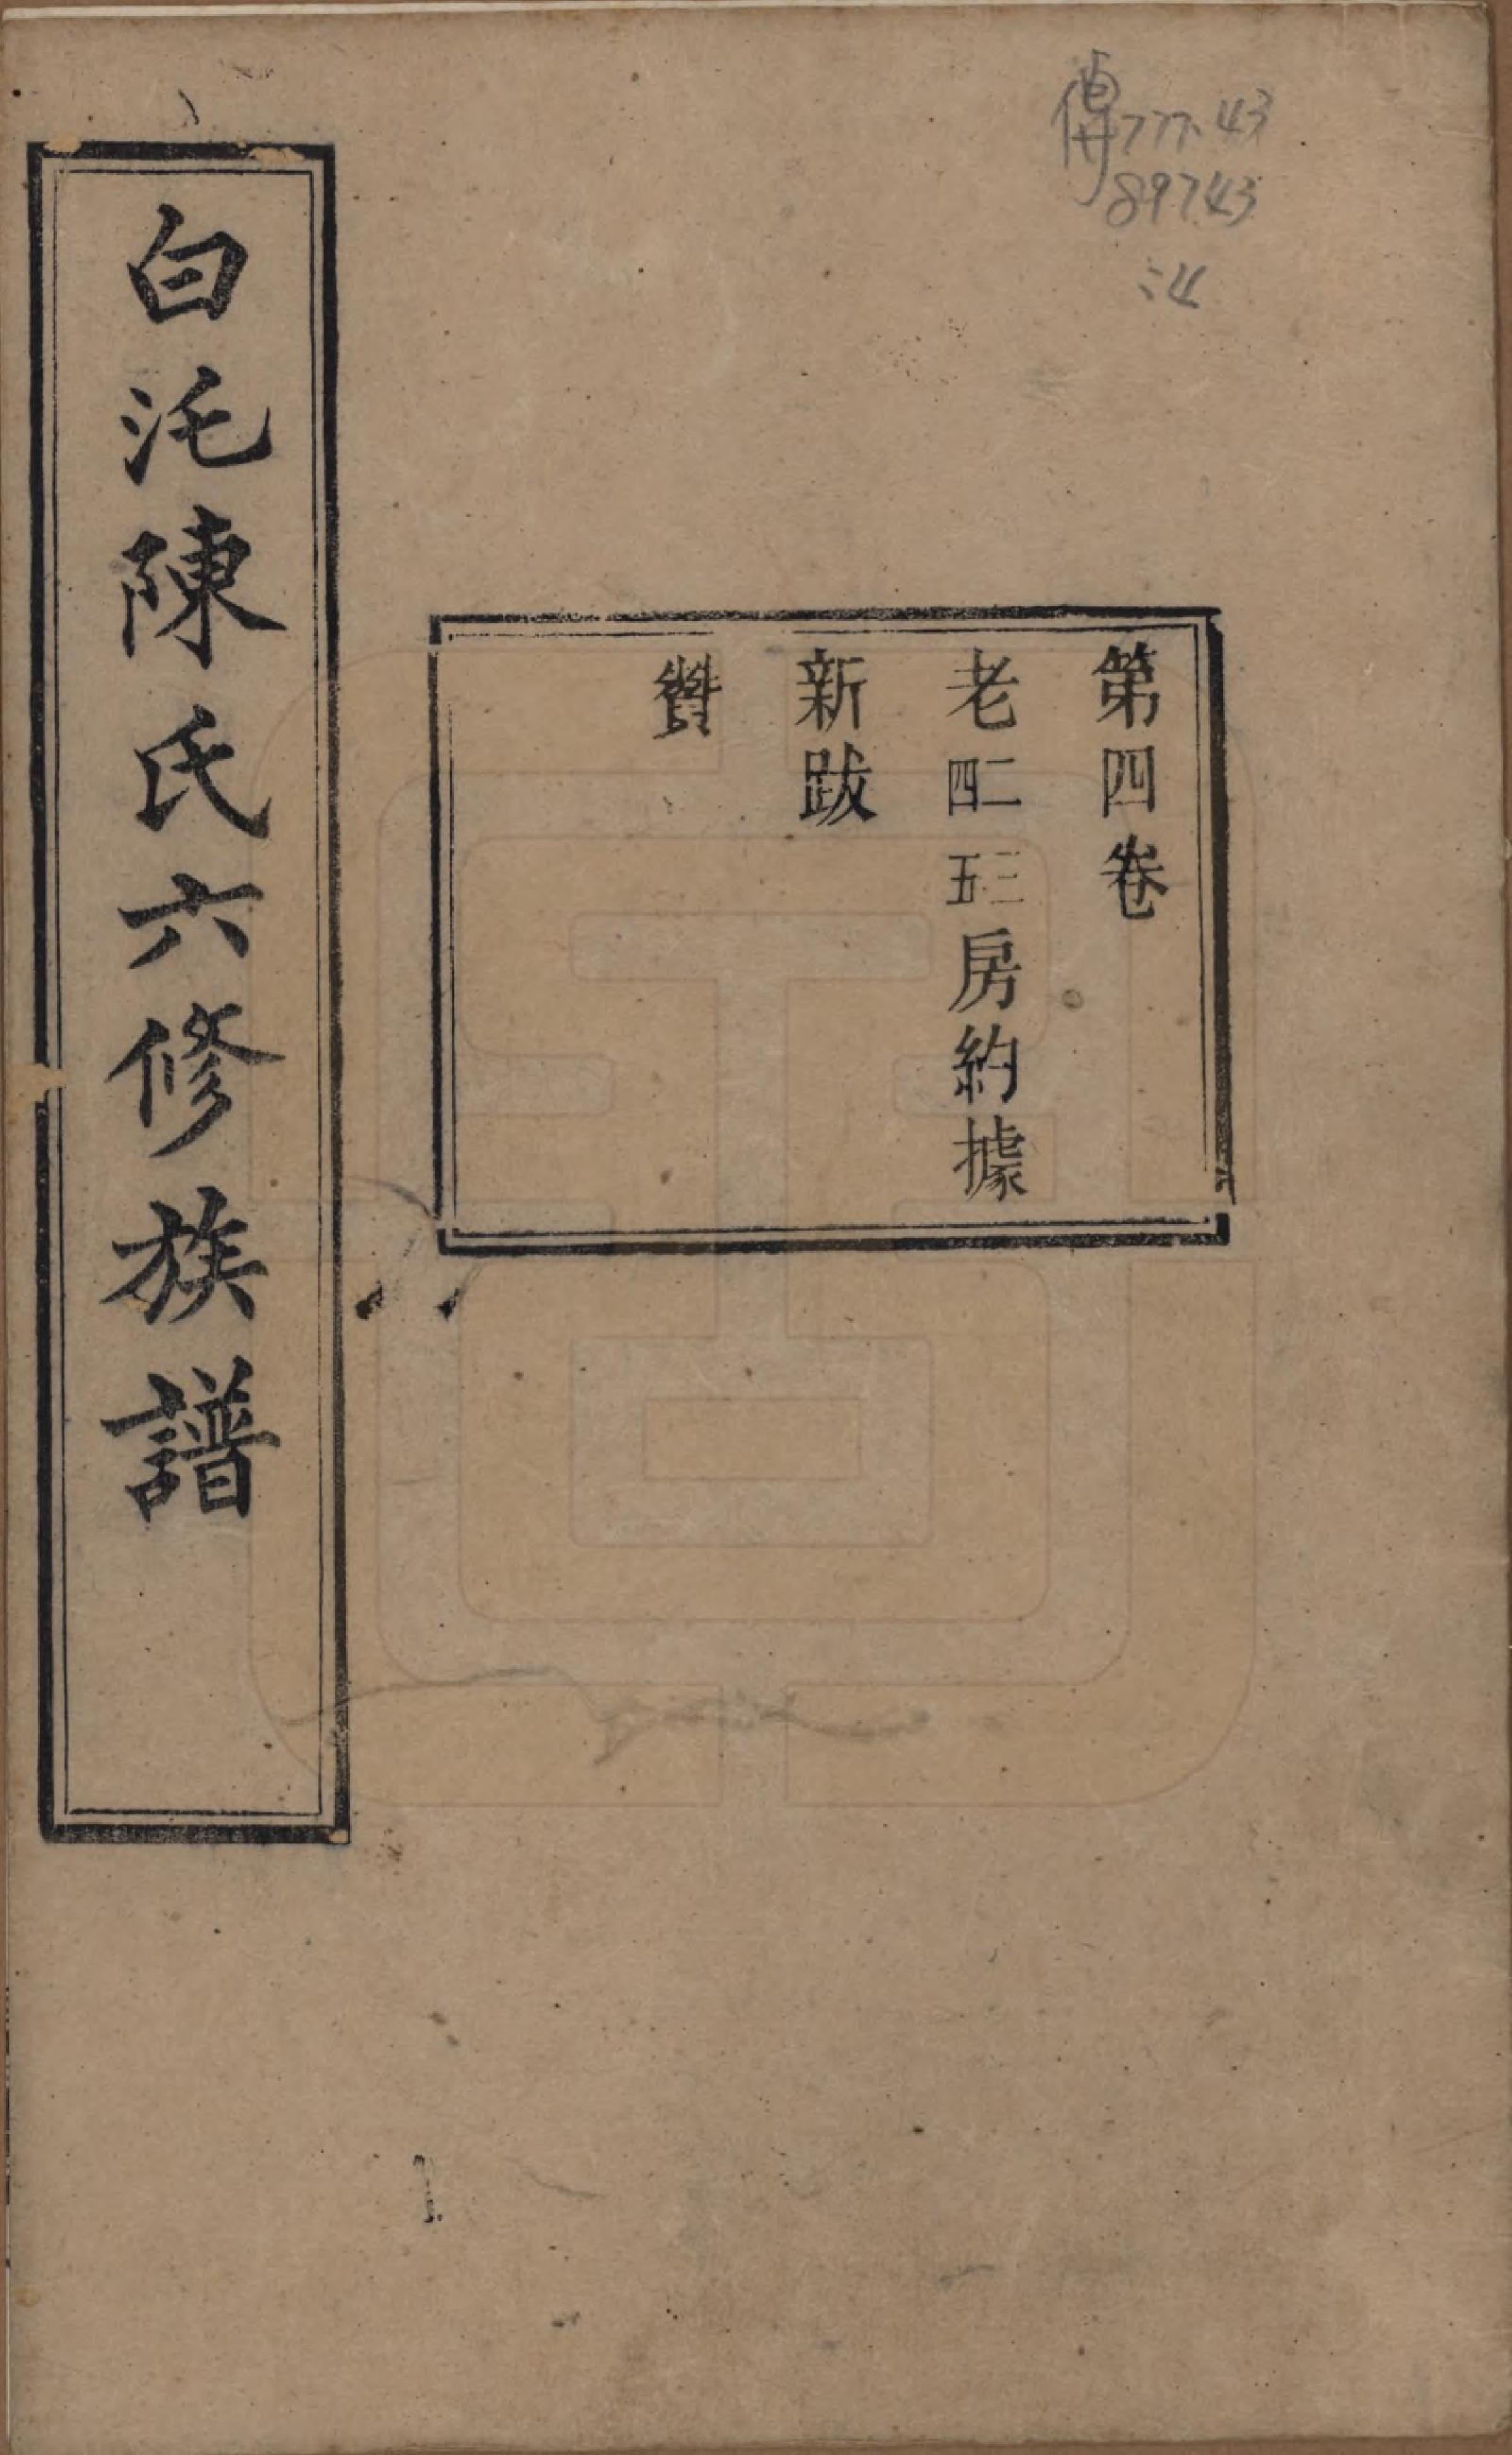 第四卷
老二三四五房約據
新跋
贊
白沱陳氏六修族譜
傳777.43
89743
:4